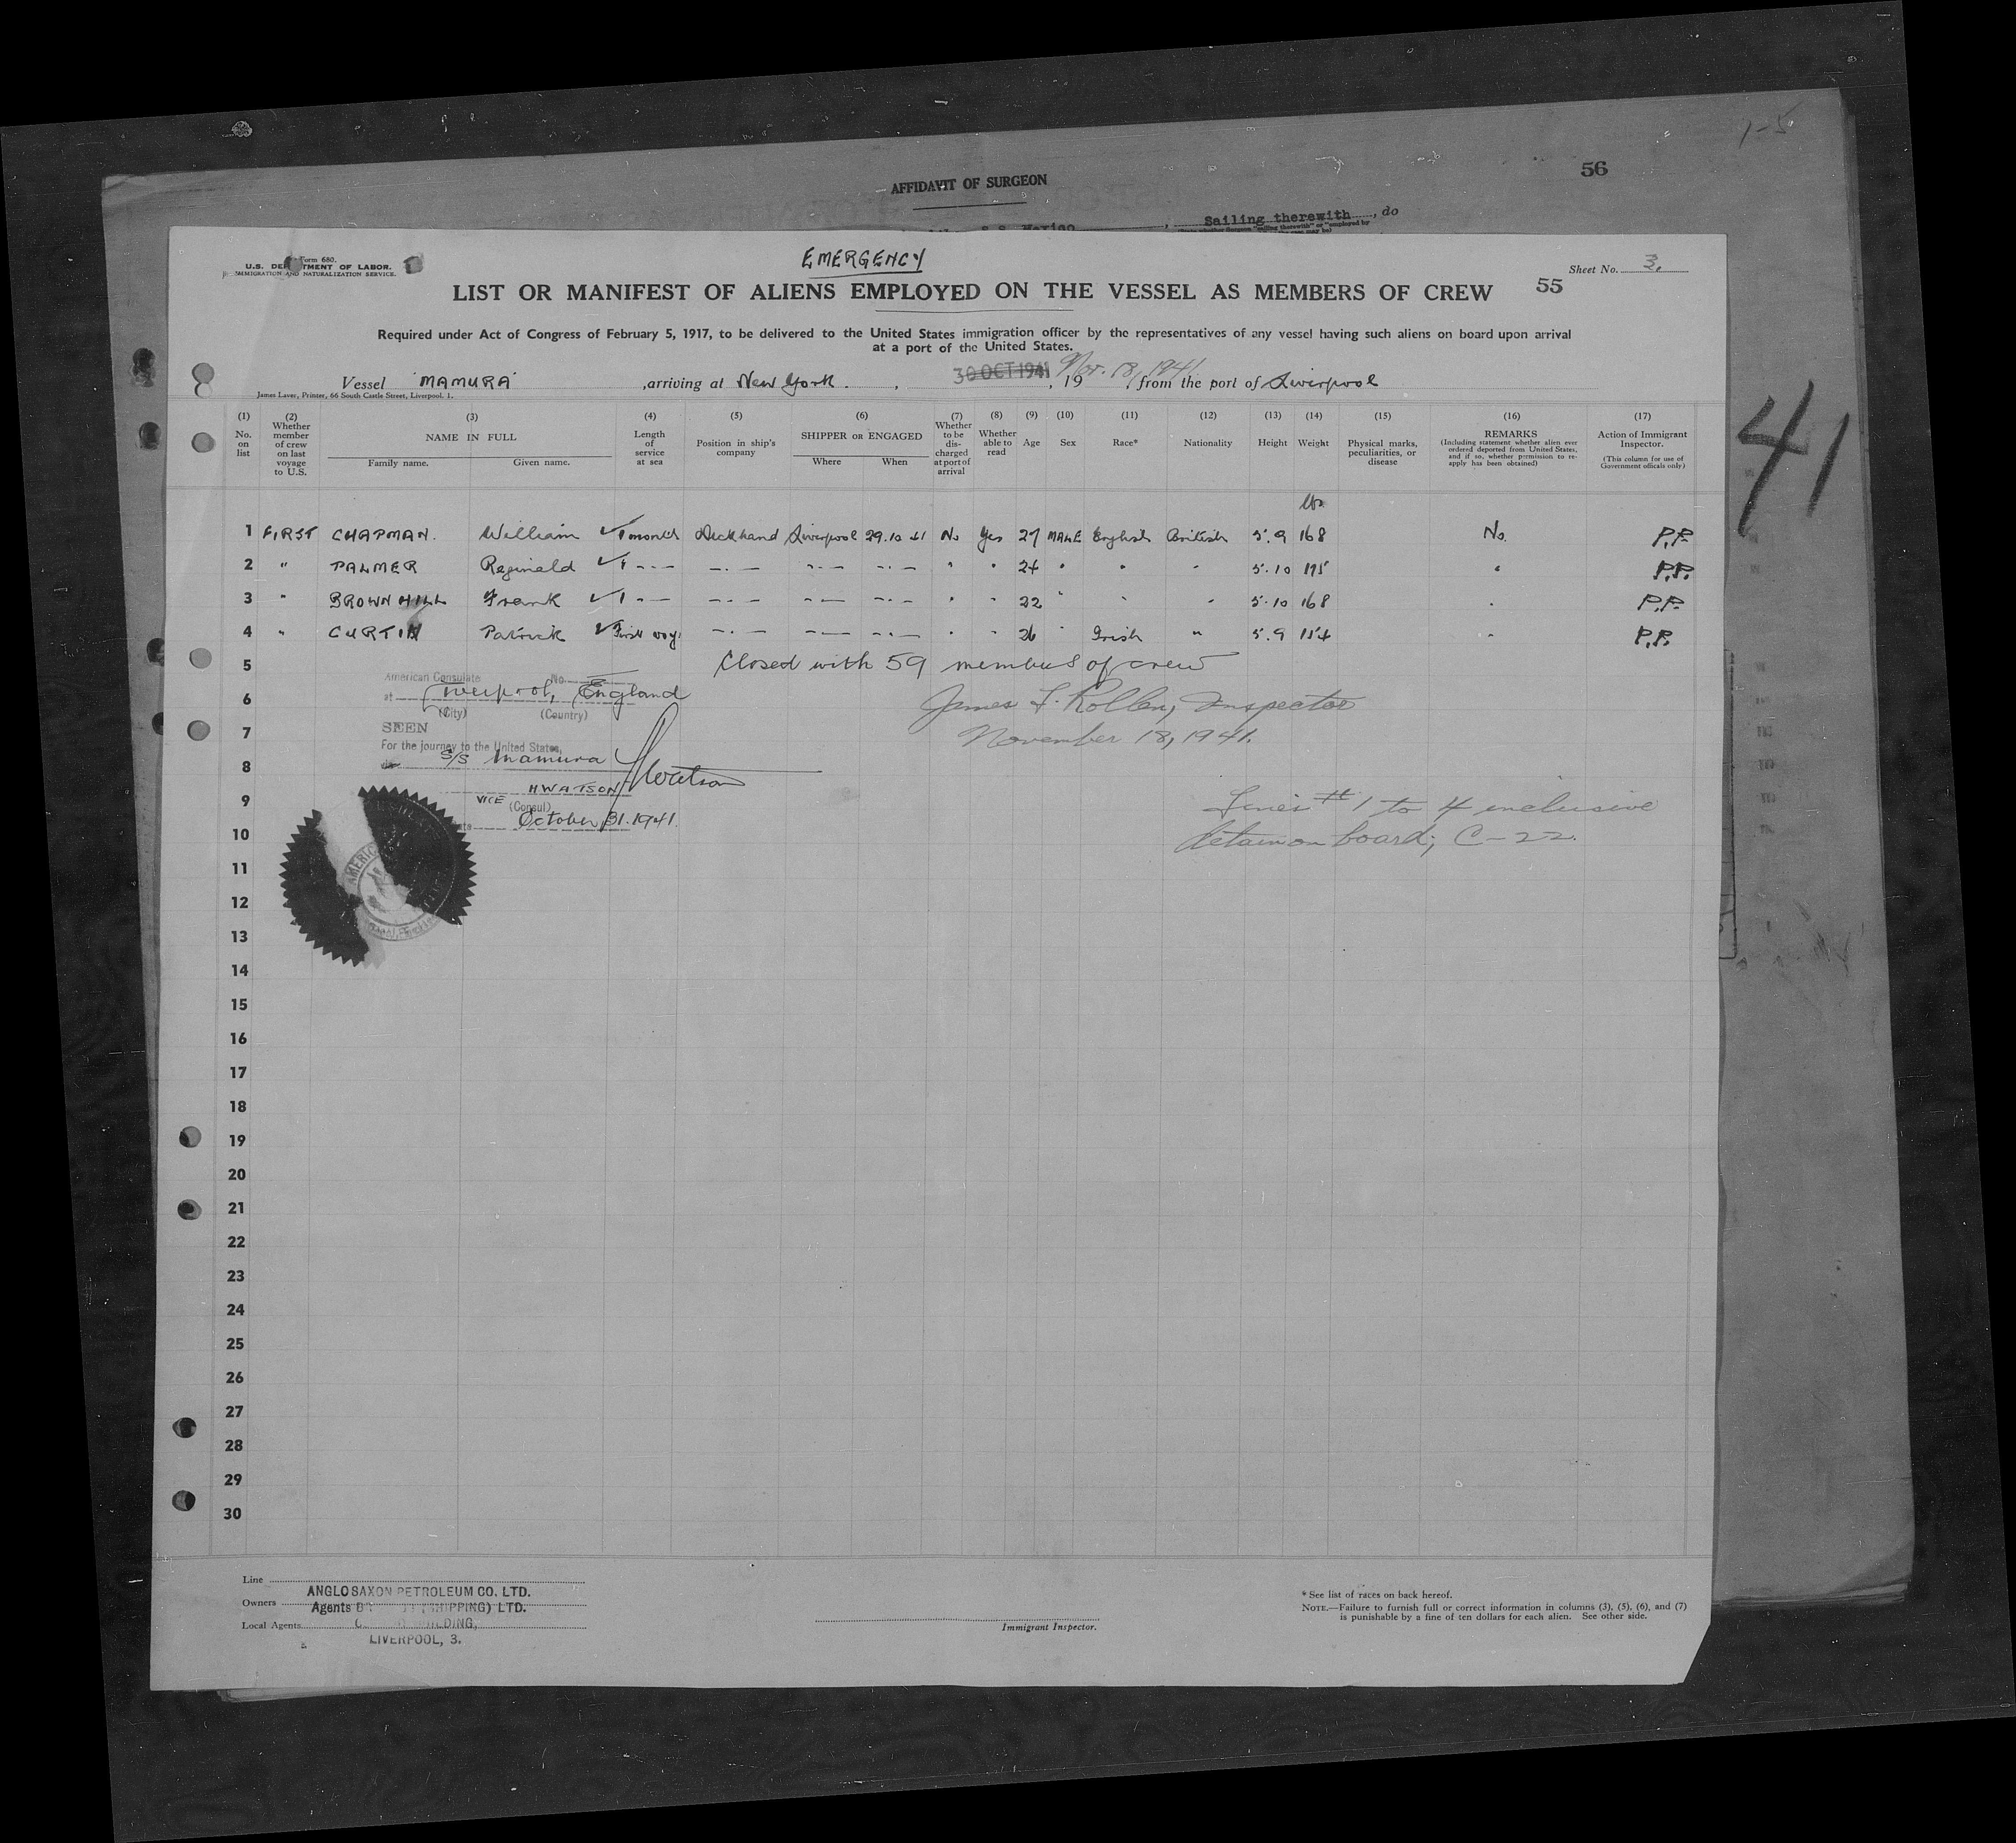 1-5
56
AFFIDAVIT OF SURGEON
Sailing therewith, do
S.S. Mexico
Form 680.
U.S. DEPARTMENT OF LABOR.
IMMIGRATION AND NATURALIZATION SERVICE.
EMERGENCY
Sheet No. 3.
LIST OR MANIFEST OF ALIENS EMPLOYED ON THE VESSEL AS MEMBERS OF CREW 55
Required under Act of Congress of February 5, 1917, to be delivered to the United States immigration officer by the representatives of any vessel having such aliens on board upon arrival
at a port of the United States.
Vessel 'MAMURA' , arriving at New York. , 30 OCT 1941 Nov. 18, 1941 , 19 , from the port of Liverpool
James Laver, Printer, 66 South Castle Street, Liverpool. 1.
41
(1) No. on list (2) Whether member of crew on last voyage to U.S. (3) NAME IN FULL Family name. Given name. (4) Length of service at sea (5) Position in ship's company (6) SHIPPER OR ENGAGED Where When (7) Whether to be discharged at port of arrival (8) Whether able to read (9) Age (10) Sex (11) Race* (12) Nationality (13) Height (14) Weight (15) Physical marks, peculiarities, or disease (16) REMARKS (Including statement whether alien ever ordered deported from United States, and if so, whether permission to re-apply has been obtained) (17) Action of Immigrant Inspector. (This column for use of Government officals only)
lbs
1 FIRST CHAPMAN. William ✓ 1 month Deckhand Liverpool 29.10.41 No Yes 27 MALE English British 5.9 168 No. P.P.
2 " PALMER Reginald ✓ 1 - - - - . - - . - - . - " " 24 " " " 5.10 175 " P.P.
3 " BROWNHILL Frank ✓ 1 - - - . - - - - . - " " 22 " " " 5.10 168 " P.P.
4 " CURTIN Patrick ✓ First voy. - . - - - - . - " " 26 " Irish " 5.9 154 " P.P.
5 Closed with 59 members of crew
American Consulate No.
6 at Liverpool, England James F. Rollen, Inspector
(City) (Country)
7 SEEN November 18, 1941.
For the journey to the United States,
8 S/S Mamura HWatson
9 HWATSON Lines # 1 to 4 inclusive
VICE (Consul)
10 October 31. 1941. detain on board; C-22.
11
12
13
14
15
16
17
18
19
20
21
22
23
24
25
26
27
28
29
30
Line
ANGLO SAXON PETROLEUM CO. LTD.
Owners
Agents (SHIPPING) LTD.
Local Agents BUILDING,
LIVERPOOL, 3.
Immigrant Inspector.
* See list of races on back hereof.
NOTE.—Failure to furnish full or correct information in columns (3), (5), (6), and (7)
is punishable by a fine of ten dollars for each alien. See other side.